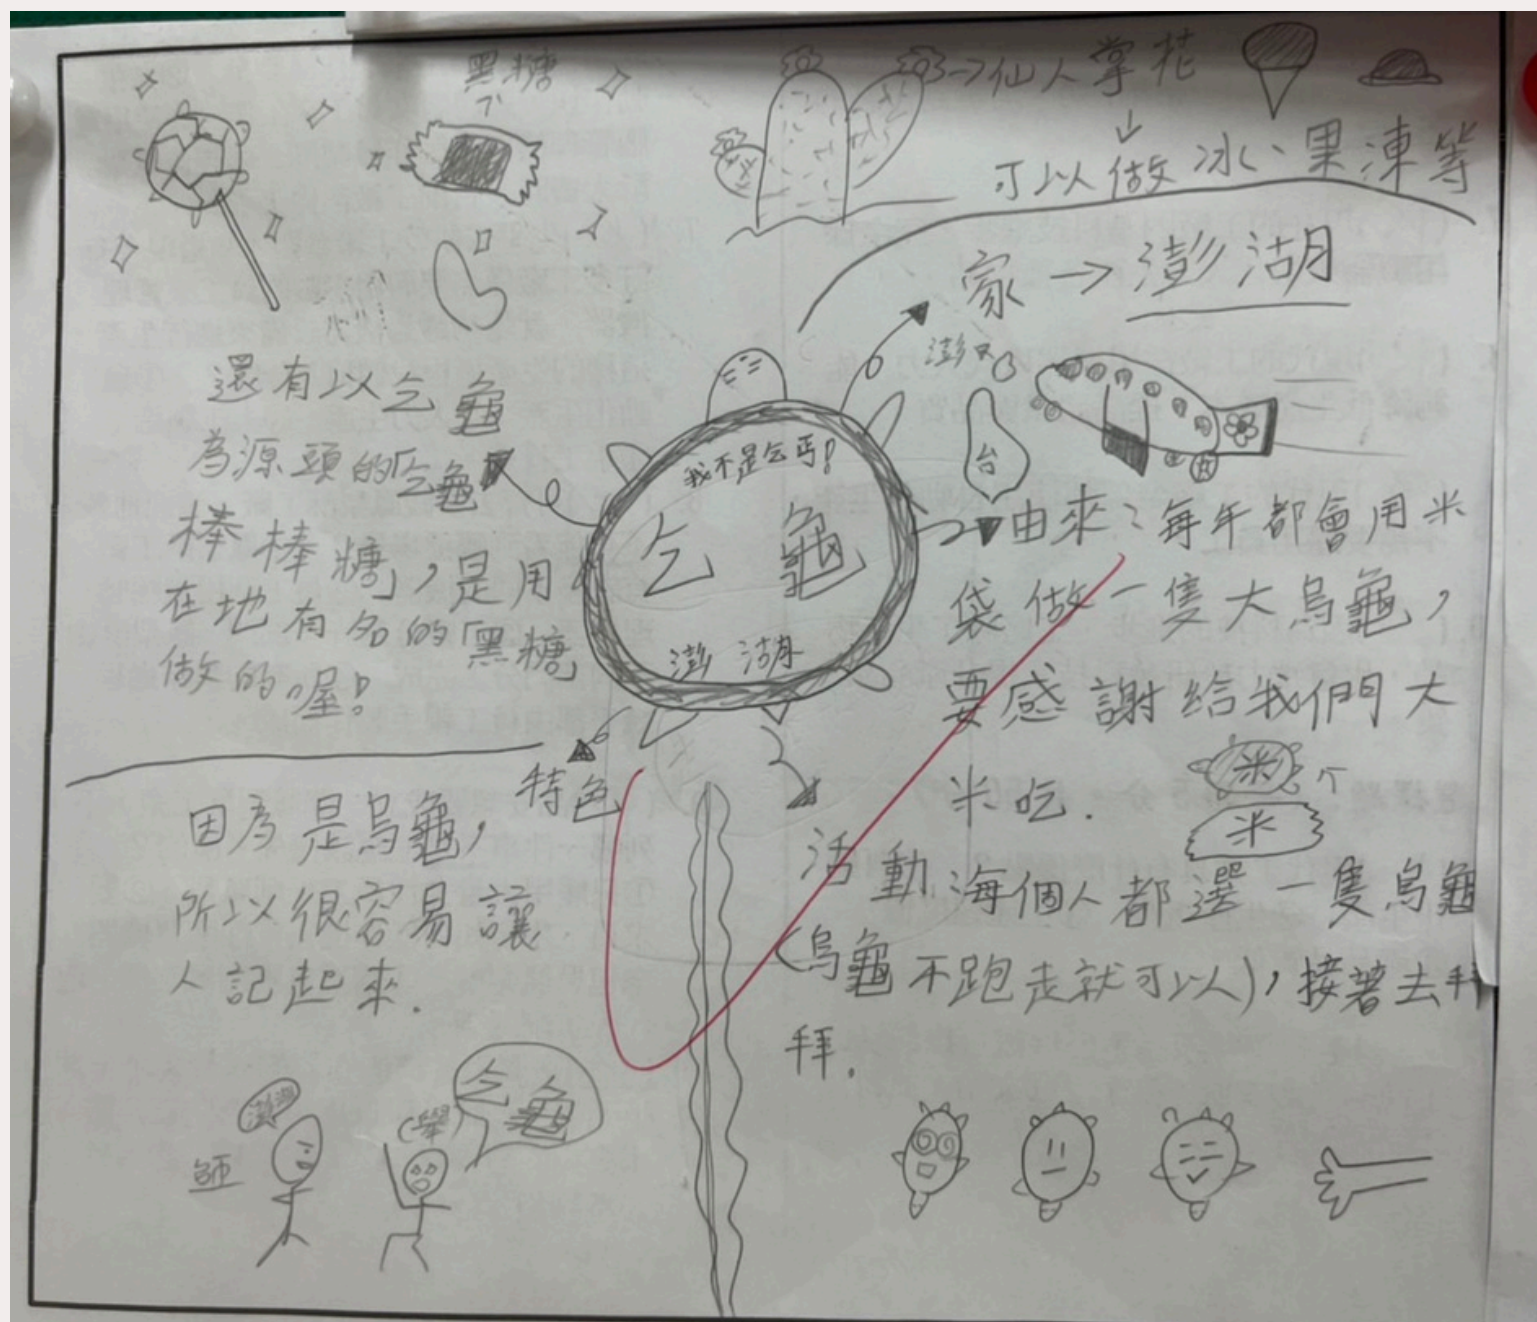 黑糖
仙人掌花
可以做冰、果凍等
家→澎湖
澎
台
還有以乞龜
為源頭的「乞龜
棒棒糖」，是用
在地有名的「黑糖
做的喔!
我不是乞丐!
乞龜
澎湖
由來：每年都會用米
袋做一隻大烏龜，
要感謝給我們大
米吃.
米
米
特色
因為是烏龜，
所以很容易讓
人記起來.
活動
每個人都選一隻烏龜
(烏龜不跑走就可以)，接著去拜
拜.
澎湖
師
(舉)
乞龜